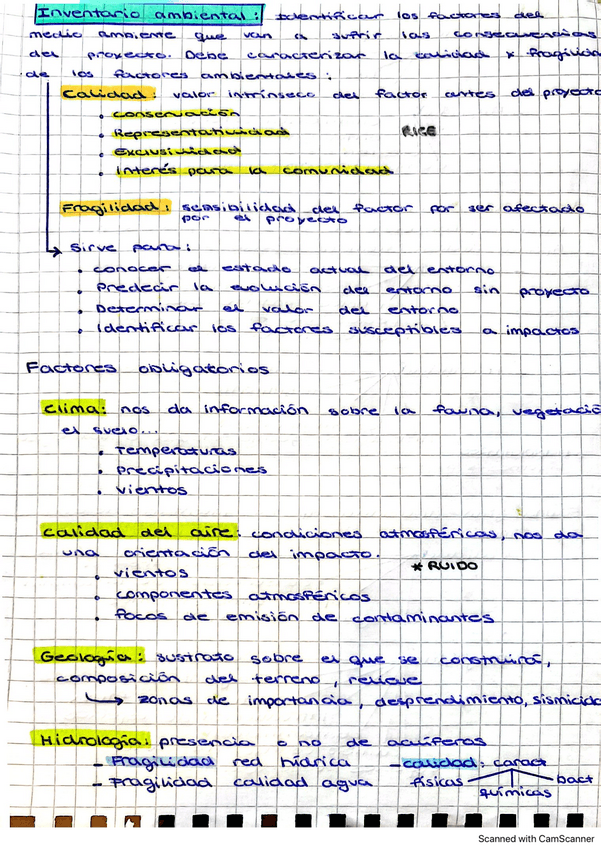 Inventario ambiental: Identificar los factores del
medio ambiente que van a sufrir las consecuencias
del proyecto. Debe caracterizar la calidad y fragilida
de los factores ambientales:
Calidad: valor intrínseco del factor antes del proyecto
• Conservación
• Representatividad RICE
• Exclusividad
• Interés para la comunidad
Fragilidad: sensibilidad del factor por ser afectado
por el proyecto
→ Sirve para:
• Conocer el estado actual del entorno
• Predecir la evolución del entorno sin proyecto
• Determinar el valor del entorno
• Identificar los factores susceptibles a impactos
Factores obligatorios
Clima: nos da información sobre la fauna, vegetació
el suelo...
• Temperaturas
• Precipitaciones
• Vientos
Calidad del aire: condiciones atmosféricas, nos da
una orientación del impacto.
• Vientos * RUIDO
• componentes atmosféricos
• Focos de emisión de contaminantes
Geología: sustrato sobre el que se construirá,
composición del terreno, relieve
→ zonas de importancia, desprendimiento, sismicida
Hidrología: presencia o no de acuíferos
- Fragilidad red hídrica - calidad: caract
- Fragilidad calidad agua físicas químicas bact
Scanned with CamScanner